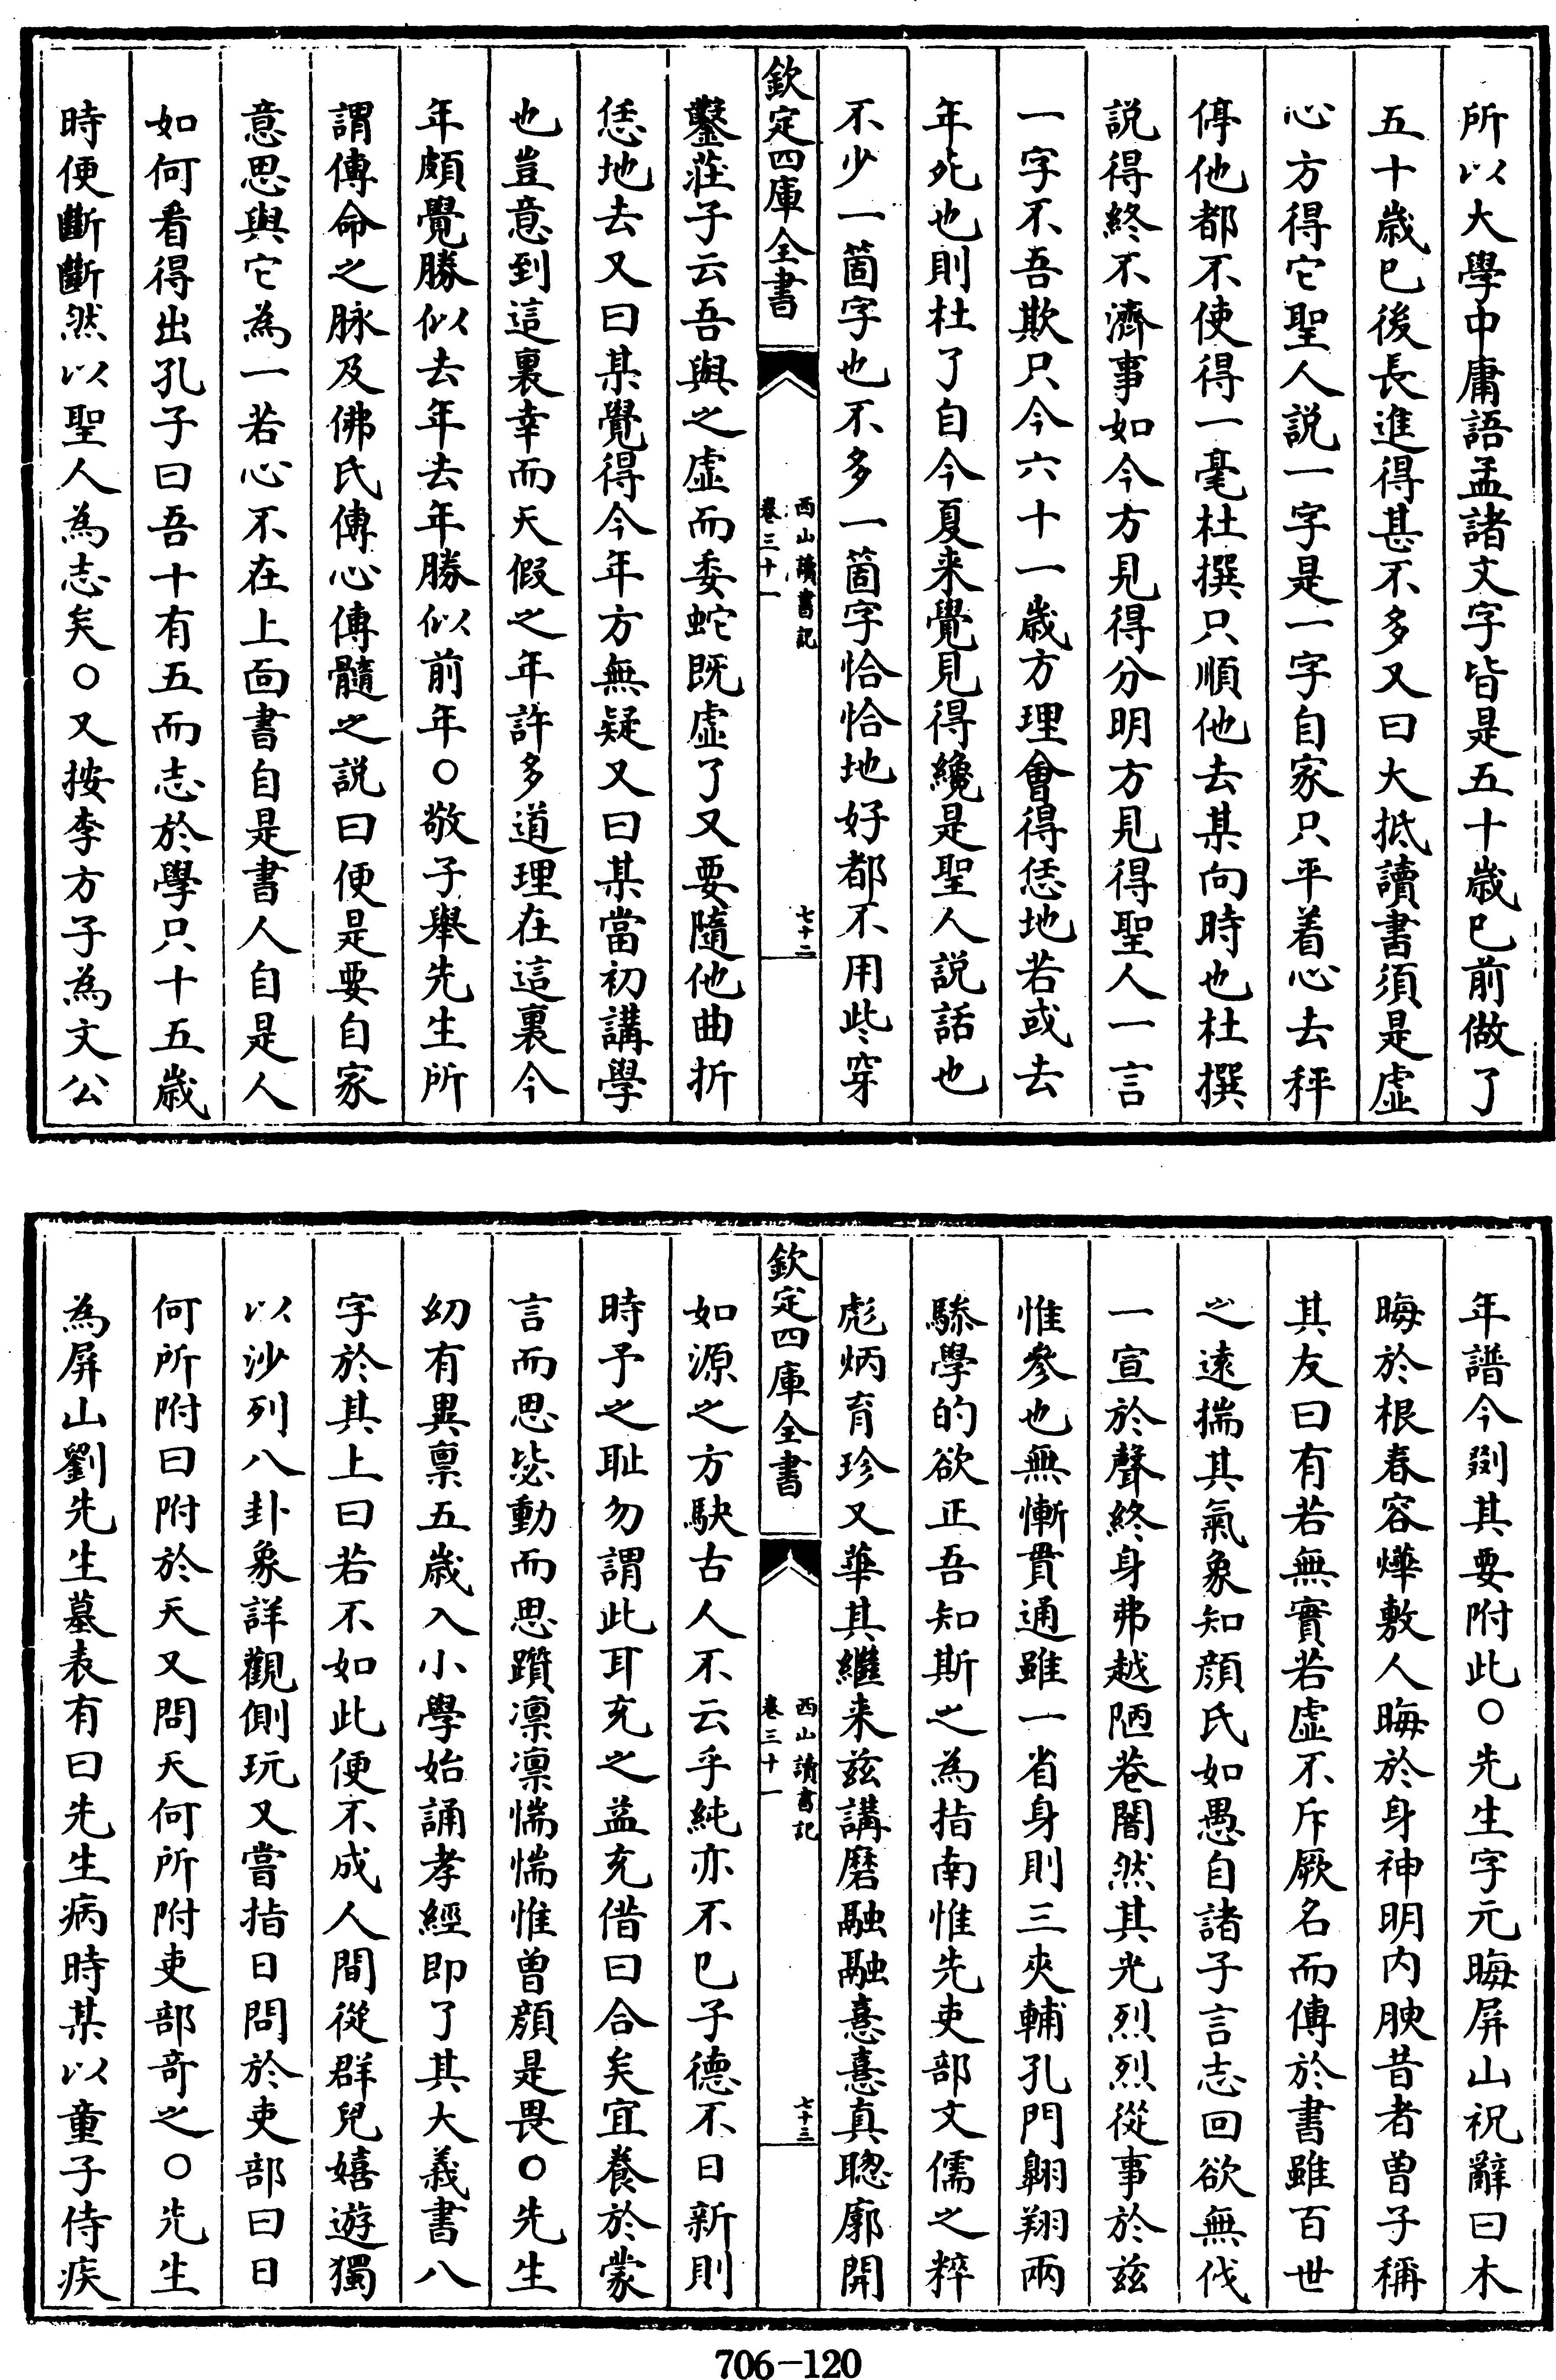 所以大學中庸語孟諸文字皆是五十歲已前做了
五十歲已後長進得甚不多又曰大抵讀書須是虛
心方得它聖人説一字是一字自家只平着心去秤
停他都不使得一毫杜撰只順他去某向時也杜撰
説得終不濟事如今方見得分明方見得聖人一言
一字不吾欺只今六十一歲方理會得恁地若或去
年死也則枉了自今夏来覺見得纔是聖人説話也
不少一箇字也不多一箇字恰恰地好都不用些穿
欽定四庫全書
西山讀書記
卷三十一
七十二
鑿莊子云吾與之虛而委蛇既虛了又要隨他曲折
恁地去又曰某覺得今年方無疑又曰某當初講學
也豈意到這裏幸而天假之年許多道理在這裏今
年頗覺勝似去年去年勝似前年○敬子舉先生所
謂傳命之脉及佛氏傳心傳髓之説曰便是要自家
意思與它為一若心不在上面書自是書人自是人
如何看得出孔子曰吾十有五而志於學只十五歲
時便斷斷然以聖人為志矣○又按李方子為文公
年譜今剟其要附此○先生字元晦屏山祝辭曰木
晦於根春容燁敷人晦於身神明内腴昔者曾子稱
其友曰有若無實若虛不斥厥名而傳於書雖百世
之逺揣其氣象知顔氏如愚自諸子言志回欲無伐
一宣於聲終身弗越陋巷闇然其光烈烈從事於兹
惟參也無慚貫通雖一省身則三夾輔孔門翺翔兩
驂學的欲正吾知斯之為指南惟先吏部文儒之粹
彪炳育珍又華其繼来兹講磨融融憙憙真聰廓開
欽定四庫全書
西山讀書記
卷三十一
七十三
如源之方駃古人不云乎純亦不已子德不日新則
時予之耻勿謂此耳充之益充借曰合矣宜養於蒙
言而思毖動而思躓凛凛惴惴惟曾顔是畏○先生
幼有異禀五歲入小學始誦孝經即了其大義書八
字於其上曰若不如此便不成人間從群兒嬉遊獨
以沙列八卦象詳觀側玩又嘗指日問於吏部曰日
何所附曰附於天又問天何所附吏部奇之○先生
為屏山劉先生墓表有曰先生病時某以童子侍疾
706-120